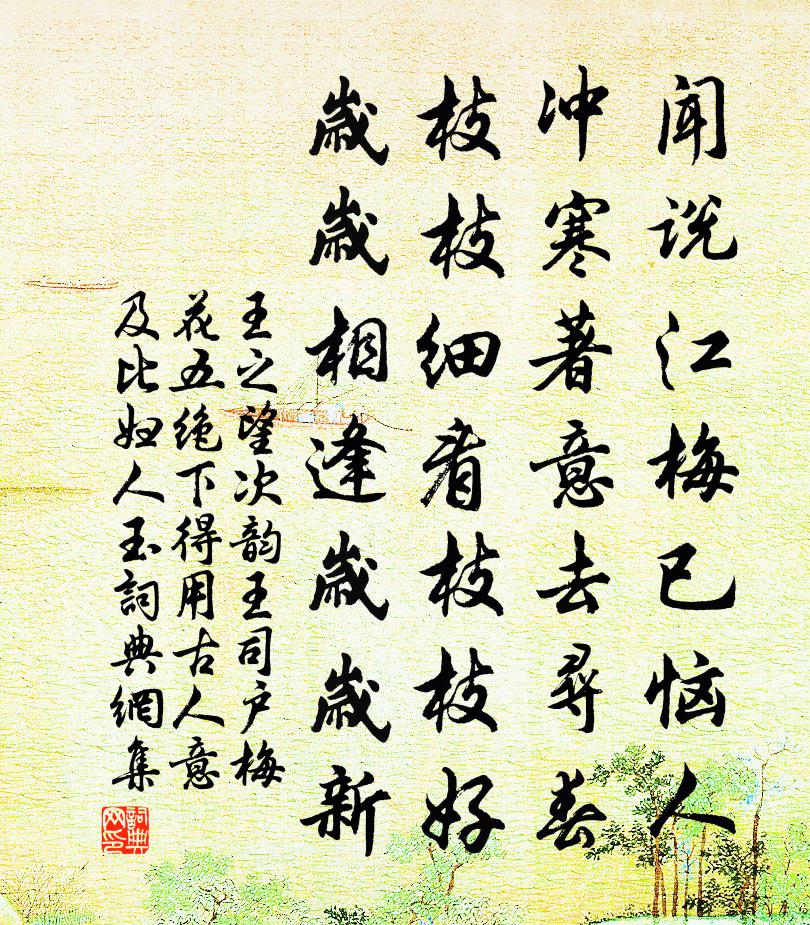 闻说江梅已恼人
冲寒著意去寻春
枝枝细看枝枝好
岁岁相逢岁岁新
王之望次韵王司户梅
花五绝下得用古人意
及比妇人玉詞典網集
詞典网印